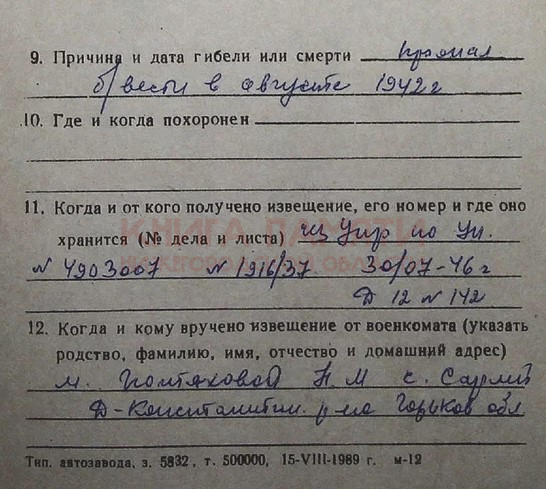 9. Причина и дата гибели или смерти пропал
б/вести в августе 1942 г
10. Где и когда похоронен
11. Когда и от кого получено извещение, его номер и где оно
хранится (№ дела и листа) из Упр по Уп.
КНИГА ПАМЯТИ
N 4903007 N 1916/37 30/07-46 г
НИЖЕГОРОДСКОЙ ОБЛАСТИ
Д 12 N 142
12. Когда и кому вручено извещение от военкомата (указать
родство, фамилию, имя, отчество и домашний адрес)
м. Н М с.
Д-Константин. р-на Горьков обл
Тип. автозавода, з. 5832, т. 500000, 15-VIII-1989 г. м-12